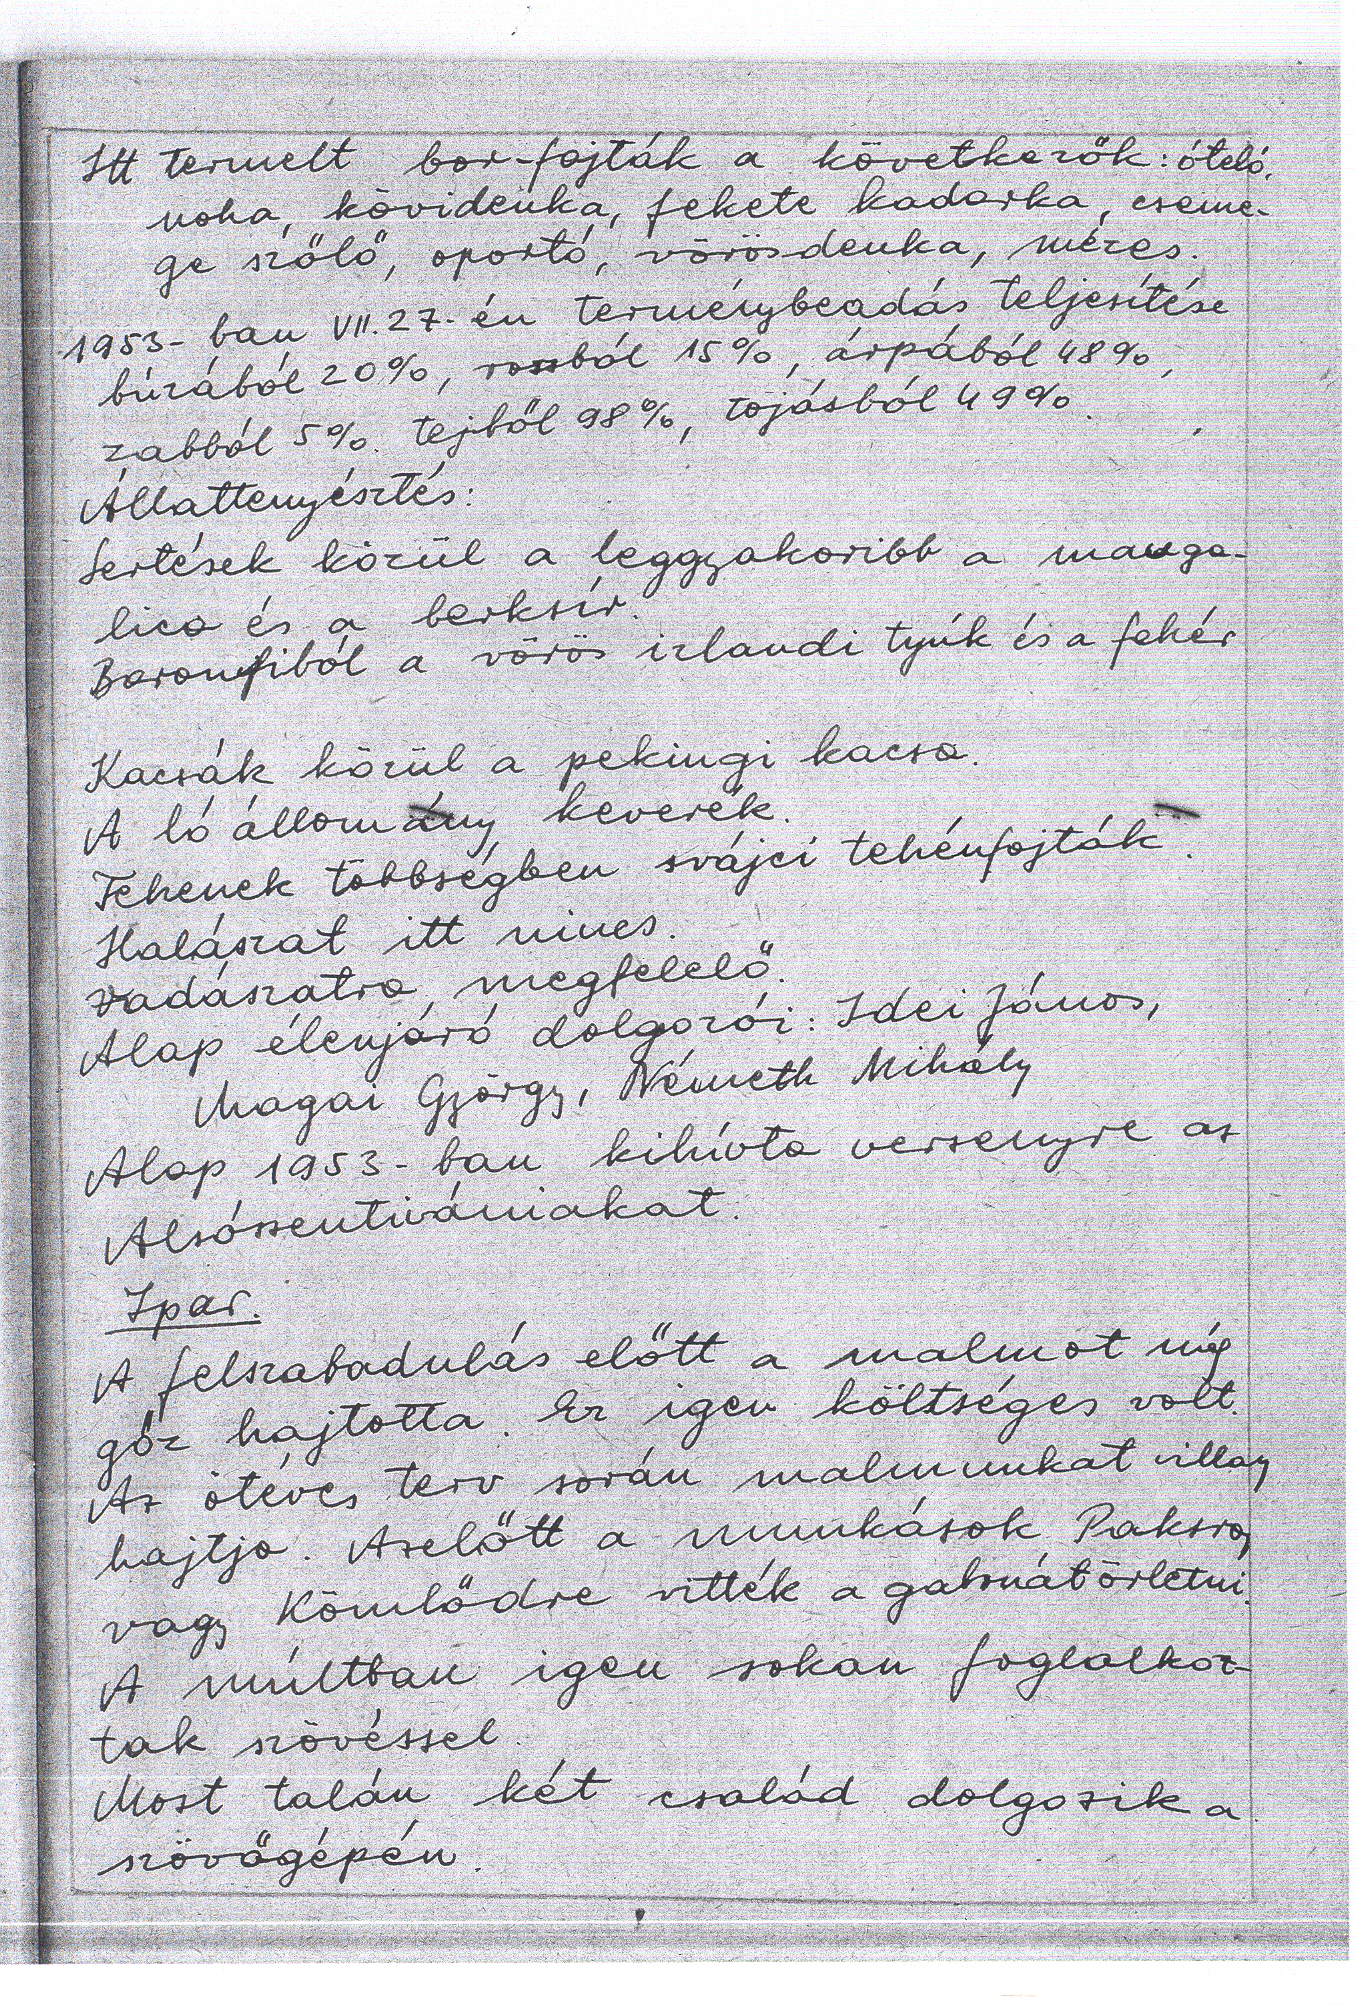 Itt termelt bor-fajták a következők: óteló,
noha, kövidenka, fekete kadarka, cseme-
ge szőlő, oportó, vörösdenka, mézes.
1953-ban VII.27-én terménybeadás teljesítése
búzából 20%, rossból 15%, árpából 48%,
zabból 5%. tejből 98%, tojásból 49%.
Állattenyésztés:
Sertések közül a leggyakoribb a manga-
lica és a berksír.
Baromfiból a vörös izlandi tyúk és a fehér
Kacsák közül a pekingi kacsa.
A ló állomány keverék.
Tehenek többségben svájci tehénfajták.
Halászat itt nincs.
Vadászatra megfelelő.
Alap élenjáró dolgozói: Idei János,
Magai György, Németh Mihály
Alap 1953-ban kihívta versenyre az
Alsószentivániakat.
Ipar.
A felszabadulás előtt a malmot míg
gőz hajtotta. Ez igen költséges volt.
Az ötéves terv során malmunkat villany
hajtja. Azelőtt a munkások Paksra,
vagy Kömlődre vitték a gabonát őrletni.
A múltban igen sokan foglalkoz-
tak szövéssel.
Most talán két család dolgozik a
szövőgépén.